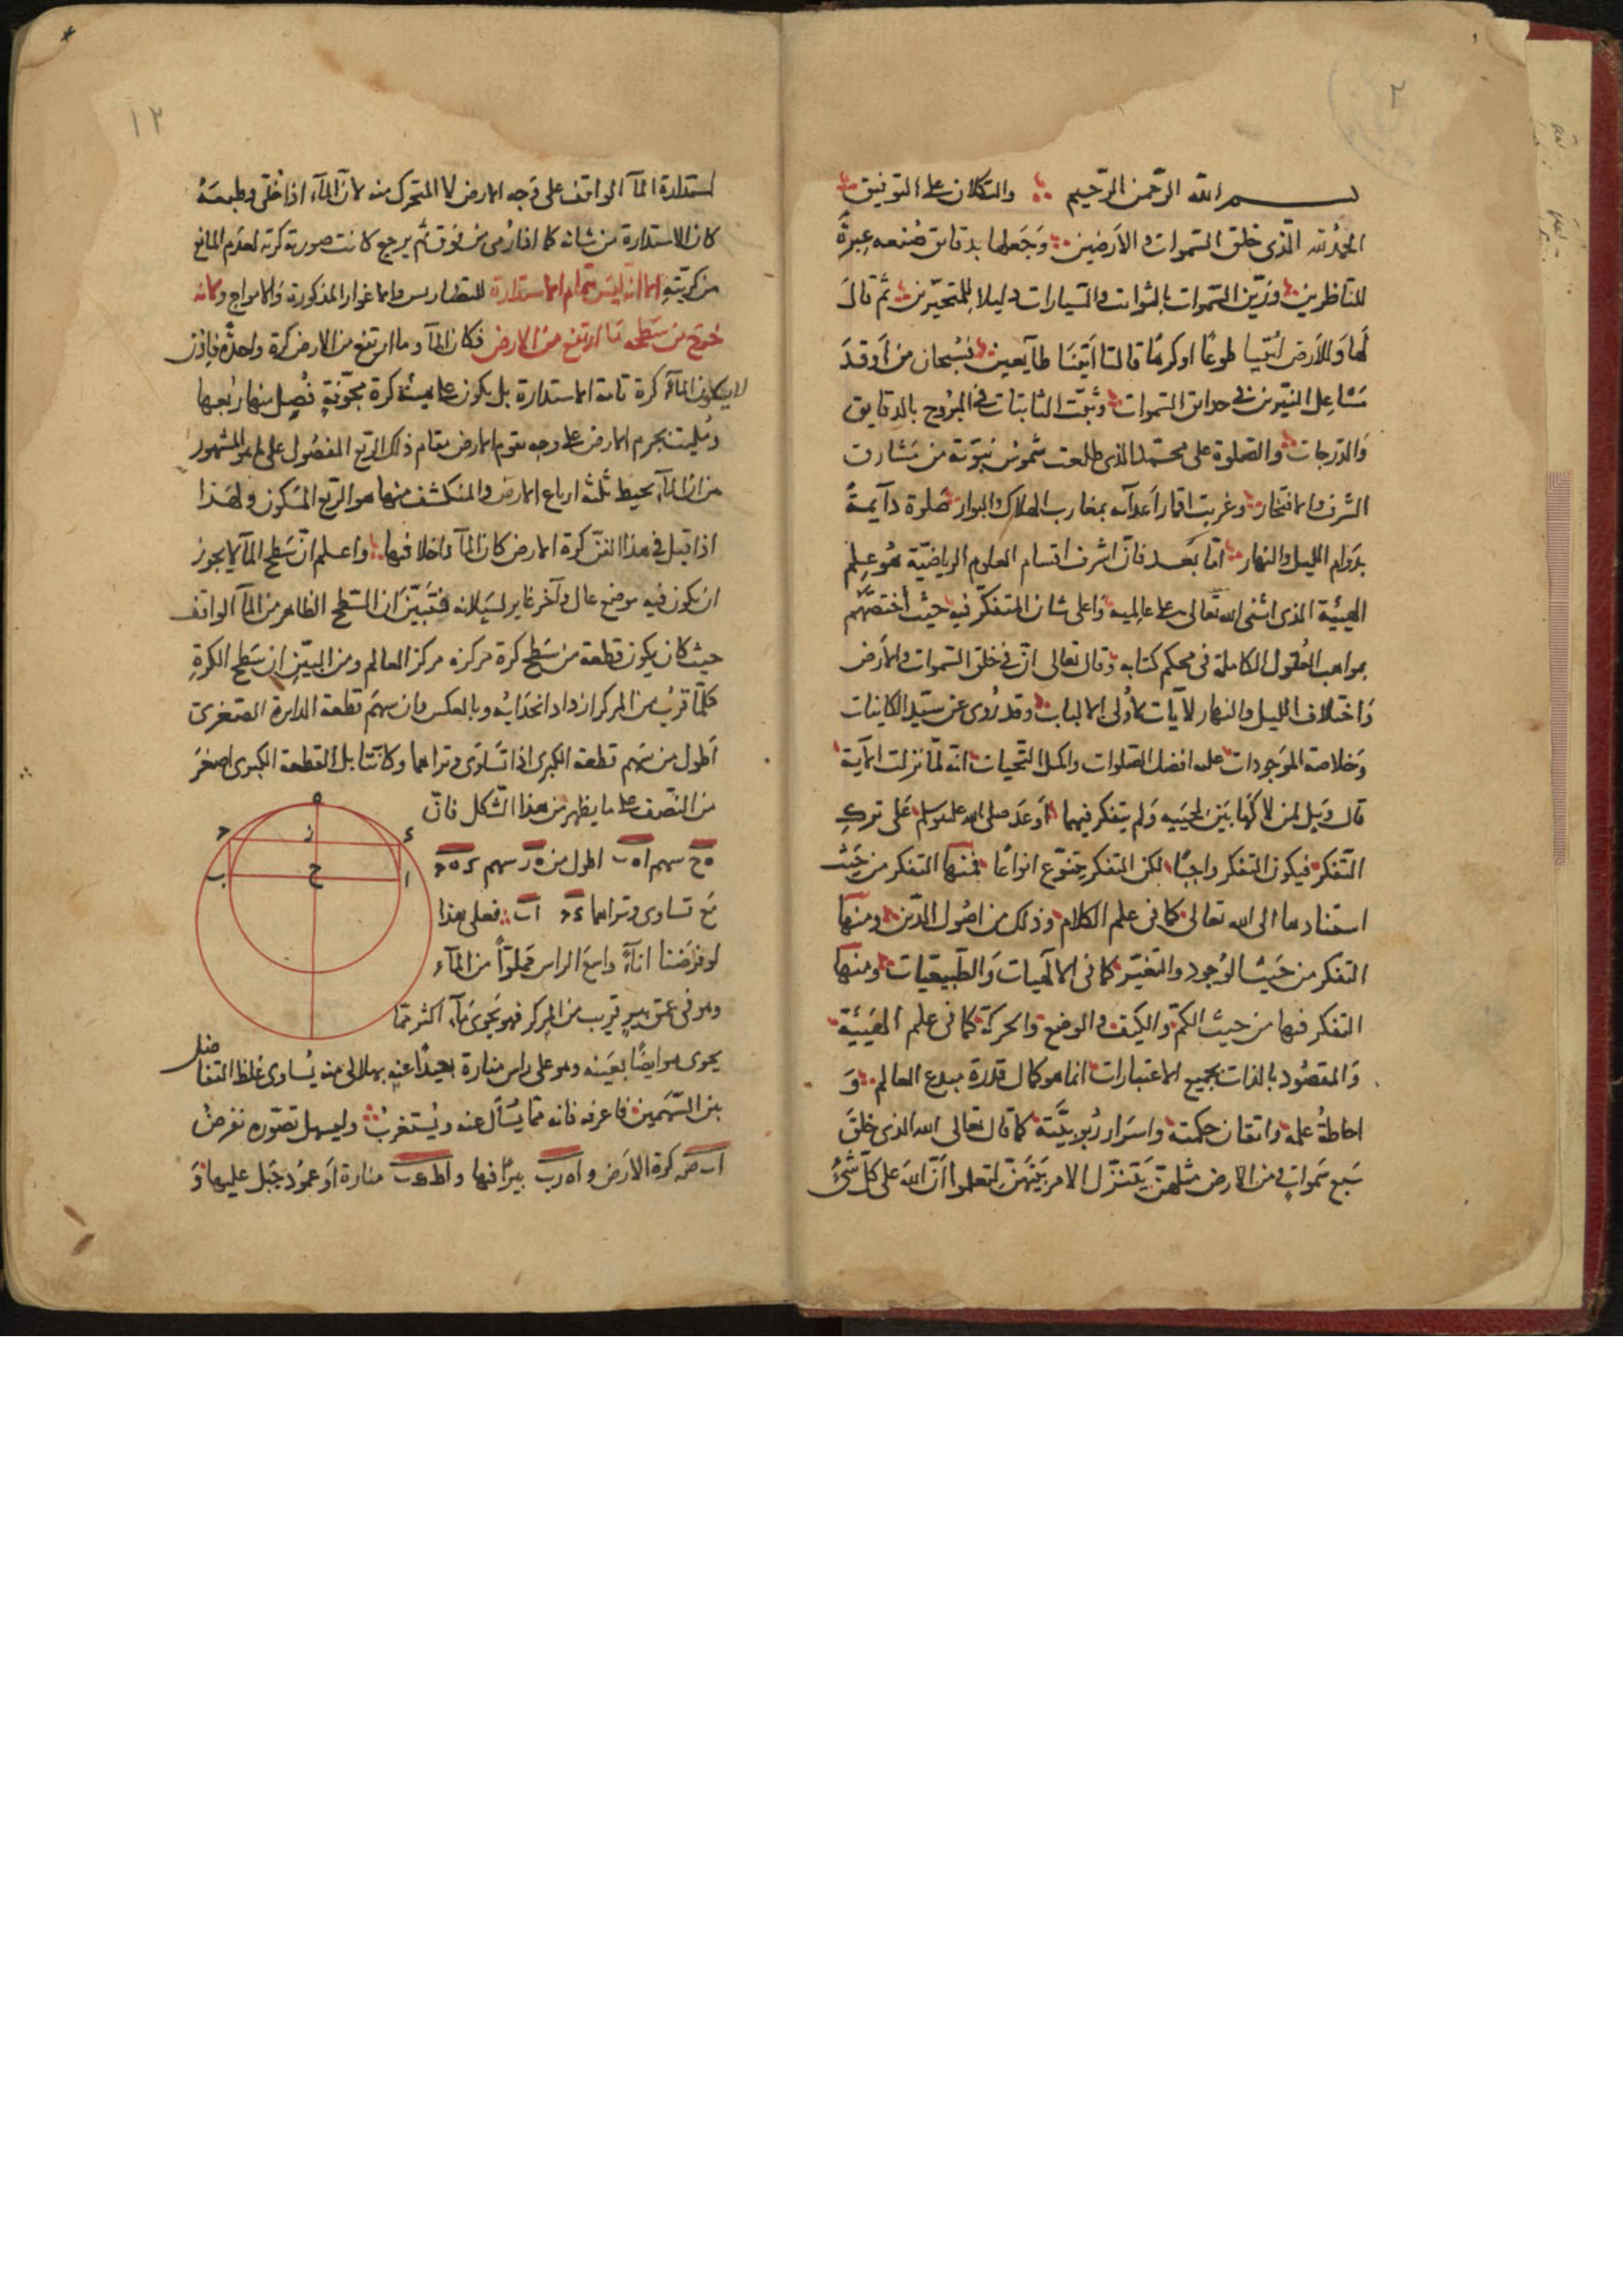 ٢
بسم الله الرحمن الرحيم والتكلان على التوفيق
الحمد لله الذى خلق السموات والارضين وجعلها بدقايق صنعه عبرة
للناظرين وزين السموات بالثوابت والسيارات دليلا للمتحيرين ثم قال
لها وللارض ائتيا طوعا او كرها قالتا اتينا طآيعين فسبحان من اوقد
مشاعل النيرين فى حدايق السموات وثبت الثابتات فى البروج بالدقايق
والدرجات والصلوة على محمد الذى طلعت شموس نبوته من مشارق
الشرف والافتخار وغربت اقمار اعدآيه بمغارب الهلاك والبوار صلوة دآيمة
بدوام الليل والنهار اما بعد فان اشرف اقسام العلوم الرياضية هو علم
الهيئية الذى اثنى الله تعالى على عالميه واعلى شان المتفكر فيه حيث اختصهم
بمواهب العقول الكاملة فى محكم كتابه وقال تعالى ان فى خلق السموات والارض
واختلاف الليل والنهار لآيات لاولى الالباب وقد روى عن سيد الكاينات
وخلاصة الموجودات عليه افضل الصلوات واكمل التحيات انه لما نزلت الآية
قال ويل لمن لاكها بين لحييه ولم يتفكر فيها اوعد صلى الله عليه وسلم على ترك
التفكر فيكون التفكر واجبا لكن التفكر يتنوع انواعا فمنها التفكر من حيث
استنادها الى الله تعالى كما فى علم الكلام وذلك من اصول الدين ومنها
التفكر من حيث الوجود والتغير كما فى الالهيات والطبيعيات ومنها
التفكر فيها من حيث الكم والكيف والوضع والحركة كما فى علم الهيئية
والمقصود بالذات بجميع الاعتبارات انما هو كمال قدرة مبدع العالم و
احاطة علمه واتقان حكمته واسرار ربوبيته كما قال تعالى الله الذى خلق
سبع سموات ومن الارض مثلهن يتنزل الامر بينهن لتعلموا ان الله على كل شئ
١٢
استدارة المآ الواقف على وجه الارض لا المتحرك منه لان المآء اذا خلى وطبعه
كان الاستدارة من شانه كما اذا رمى من فوق ثم يرجع كانت صورته كرية لعدم المانع
من كريته الا انه ليس بتام الاستدارة للتضاريس والاغوار المذكورة والامواج وكانه
خرج من سطحه ما ارتفع من الارض فكان المآ وما ارتفع من الارض كرة واحدة فاذن
لا يكون المآء كرة تامة الاستدارة بل يكون على هيئة كرة مجوفة فصل منها ربعها
وملئت بجرم الارض على وجه يقوم الارض مقام ذلك الربع المفصول على ما هو المشهور
من ان المآء يحيط بثلثة ارباع الارض والمنكشف منها هو الربع المسكون ولهذا
اذا قيل فى هذا الفن كرة الارض كان المآ داخلا فيها واعلم ان سطح المآ لا يجوز
ان يكون فيه موضع عال وآخر غاير لسيلانه فتبين ان السطح الظاهر من المآ الواقف
حيث كان يكون قطعة من سطح كرة مركزه مركز العالم ومن البين ان سطح الكرة
كلما قرب من المركز ازداد انحدابه وبالعكس وان سهم قطعة الدايرة الصغرى
اطول من سهم قطعة الكبرى اذا تساوى وتراهما وكانتا بل القطعة الكبرى اصغر
من النصف على ما يظهر من هذا الشكل فان
ه ح سهم ا ه ب اطول من ه ز سهم د ه ح
مع تساوى وتراهما د ح ا ب فعلى هذا
لو فرضنا انآء واسع الراس مملوا من المآء
وهو فى عمق بير قريب من المركز فهو يحوى مآء اكثر مما
يحوى هو ايضا بعينه وهو على راس منارة بعيدا عنه بهلالى منه يساوى غلظ التفاضل
بين السهمين فاعرفه فانه مما يسأل عنه ويستغرب وليسهل تصوره نفرض
كرة الارض و ا ه ر ب بيرا فيها و ا ط ه ب منارة او عمود جبل عليها و
ه
ح
ز
د
ب
ح
ا